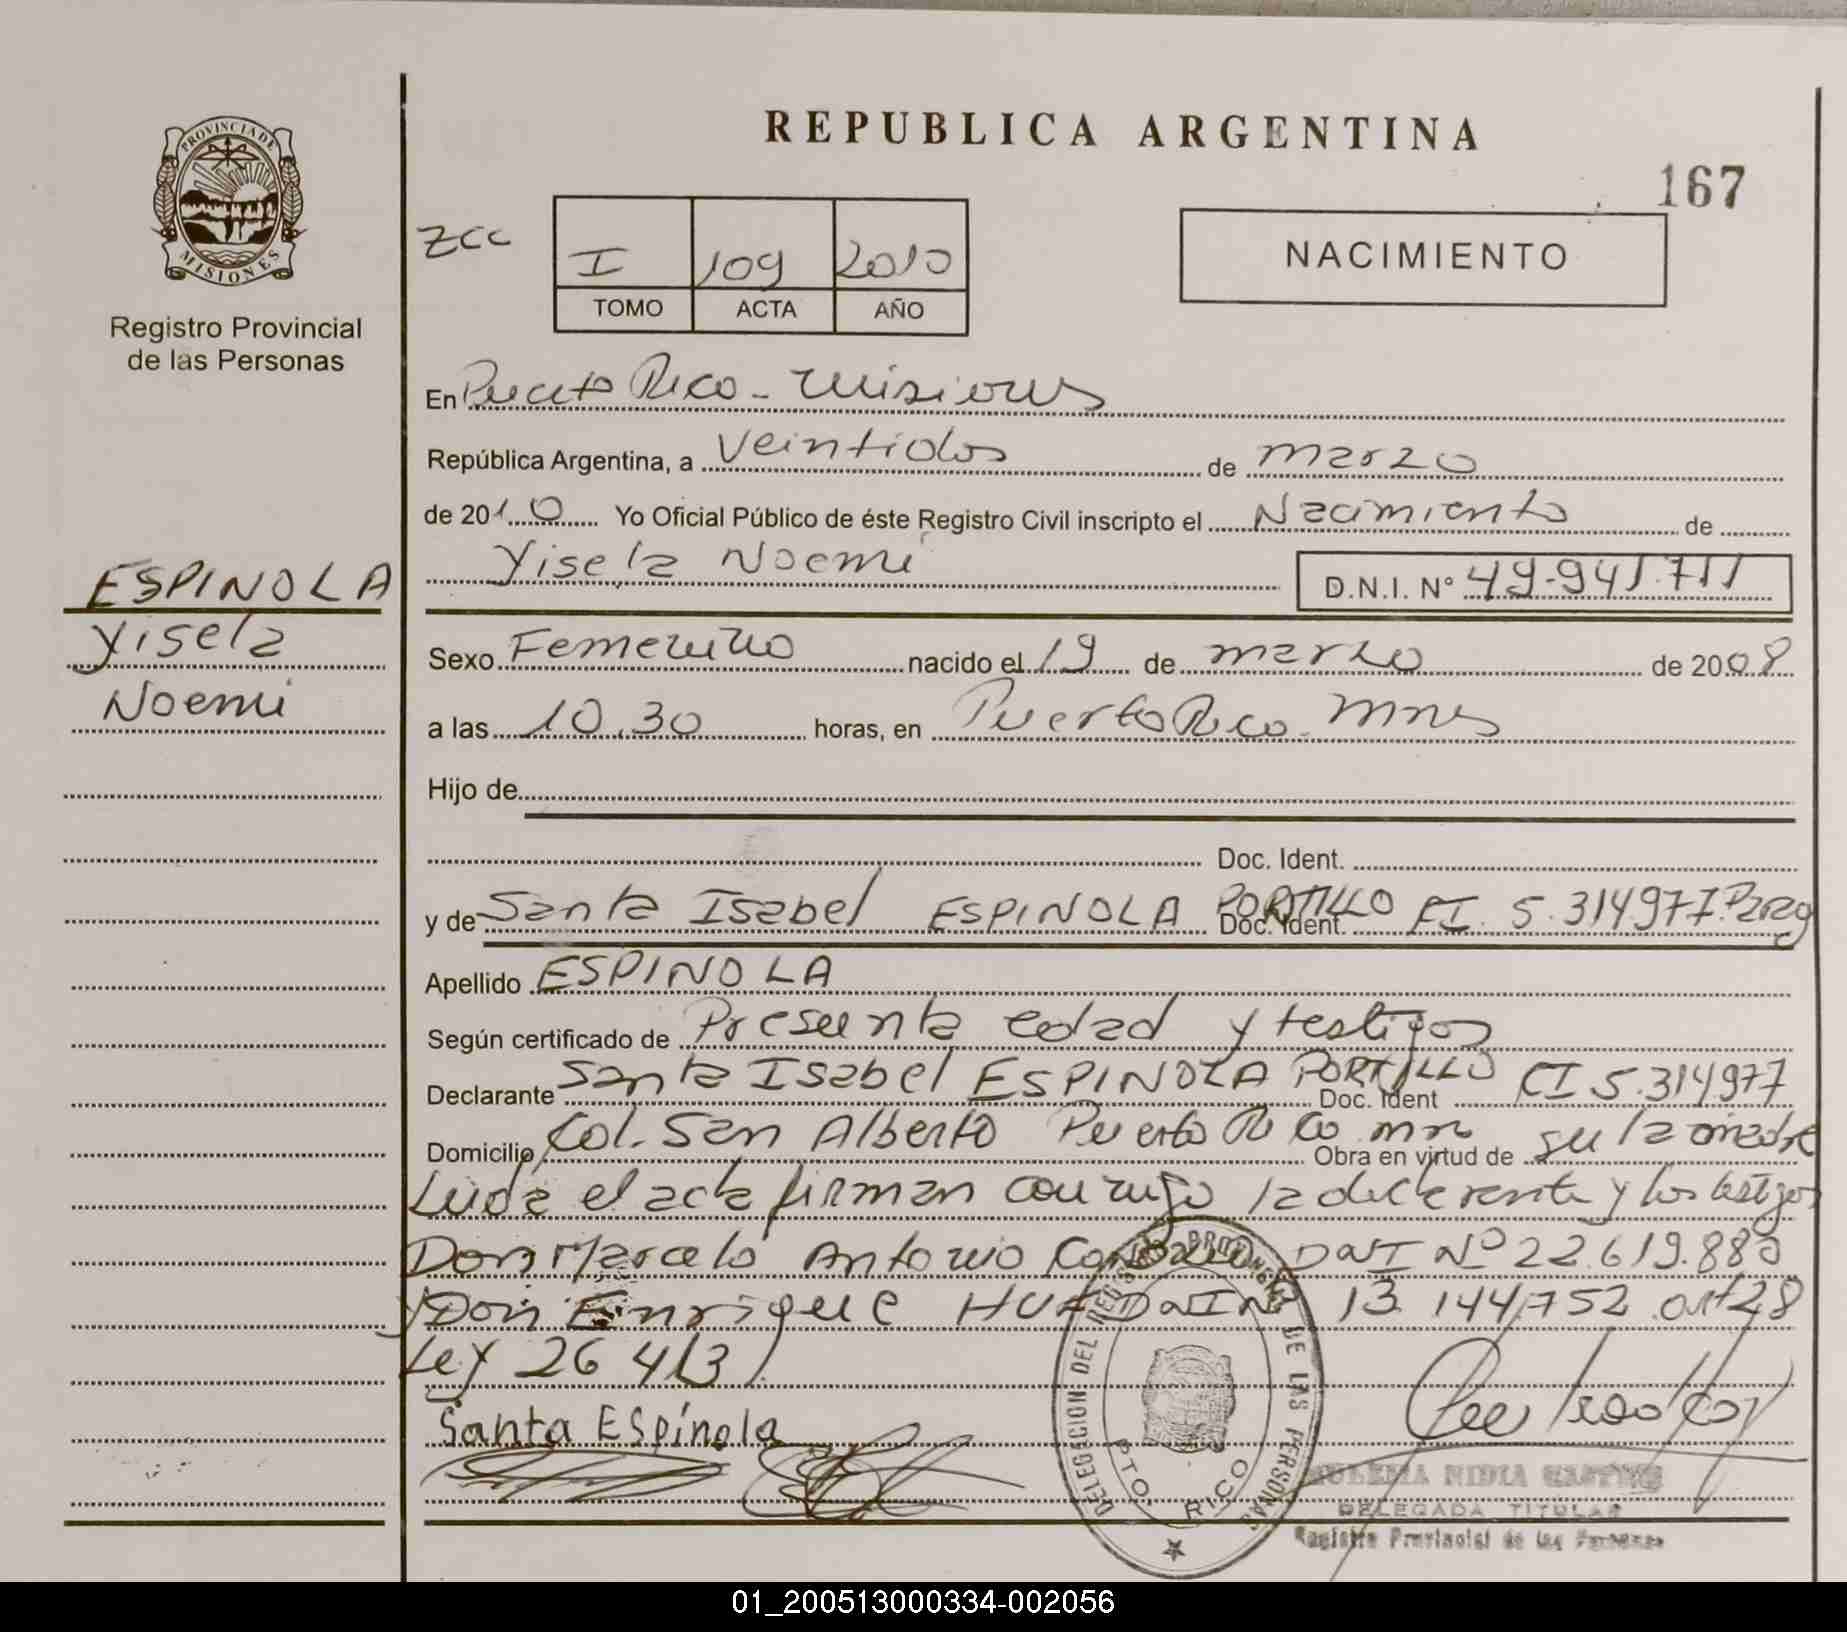 REPUBLICA ARGENTINA
167
PROVINCIA DE MISIONES
Registro Provincial
de las Personas
zcc
I 109 2010
TOMO ACTA AÑO
NACIMIENTO
En Puerto Rico - Misiones
República Argentina, a veintidos de marzo
de 2010 Yo Oficial Público de éste Registro Civil inscripto el Nacimiento de
Yisela Noemi D.N.I. Nº 49.941.711
ESPINOLA
Yisela
Noemi
Sexo Femenino nacido el 19 de marzo de 2008
a las 10.30 horas, en Puerto Rico. Mnes
Hijo de
Doc. Ident.
y de Santa Isabel ESPINOLA PORTILLO Doc. Ident. CI. 5.314977. Parag
Apellido ESPINOLA
Según certificado de Presunta edad y testigos
Declarante Santa Isabel ESPINOLA PORTILLO Doc. Ident CI 5.314977
Domicilio Col. San Alberto Puerto Rico mn Obra en virtud de su la madre
Leida el acta firman conmigo la declarante y los testigos
Don Marcelo Antonio DNI Nº 22.619.880
y Don Enrique DNI Nº 13.144.752 art 28
Ley 26 413
Santa ESpínola
DELEGACION DEL REGISTRO PROVINCIAL DE LAS PERSONAS
PTO. RICO
DELEGADA TITULAR
Registro Provincial de las Personas
01_200513000334-002056